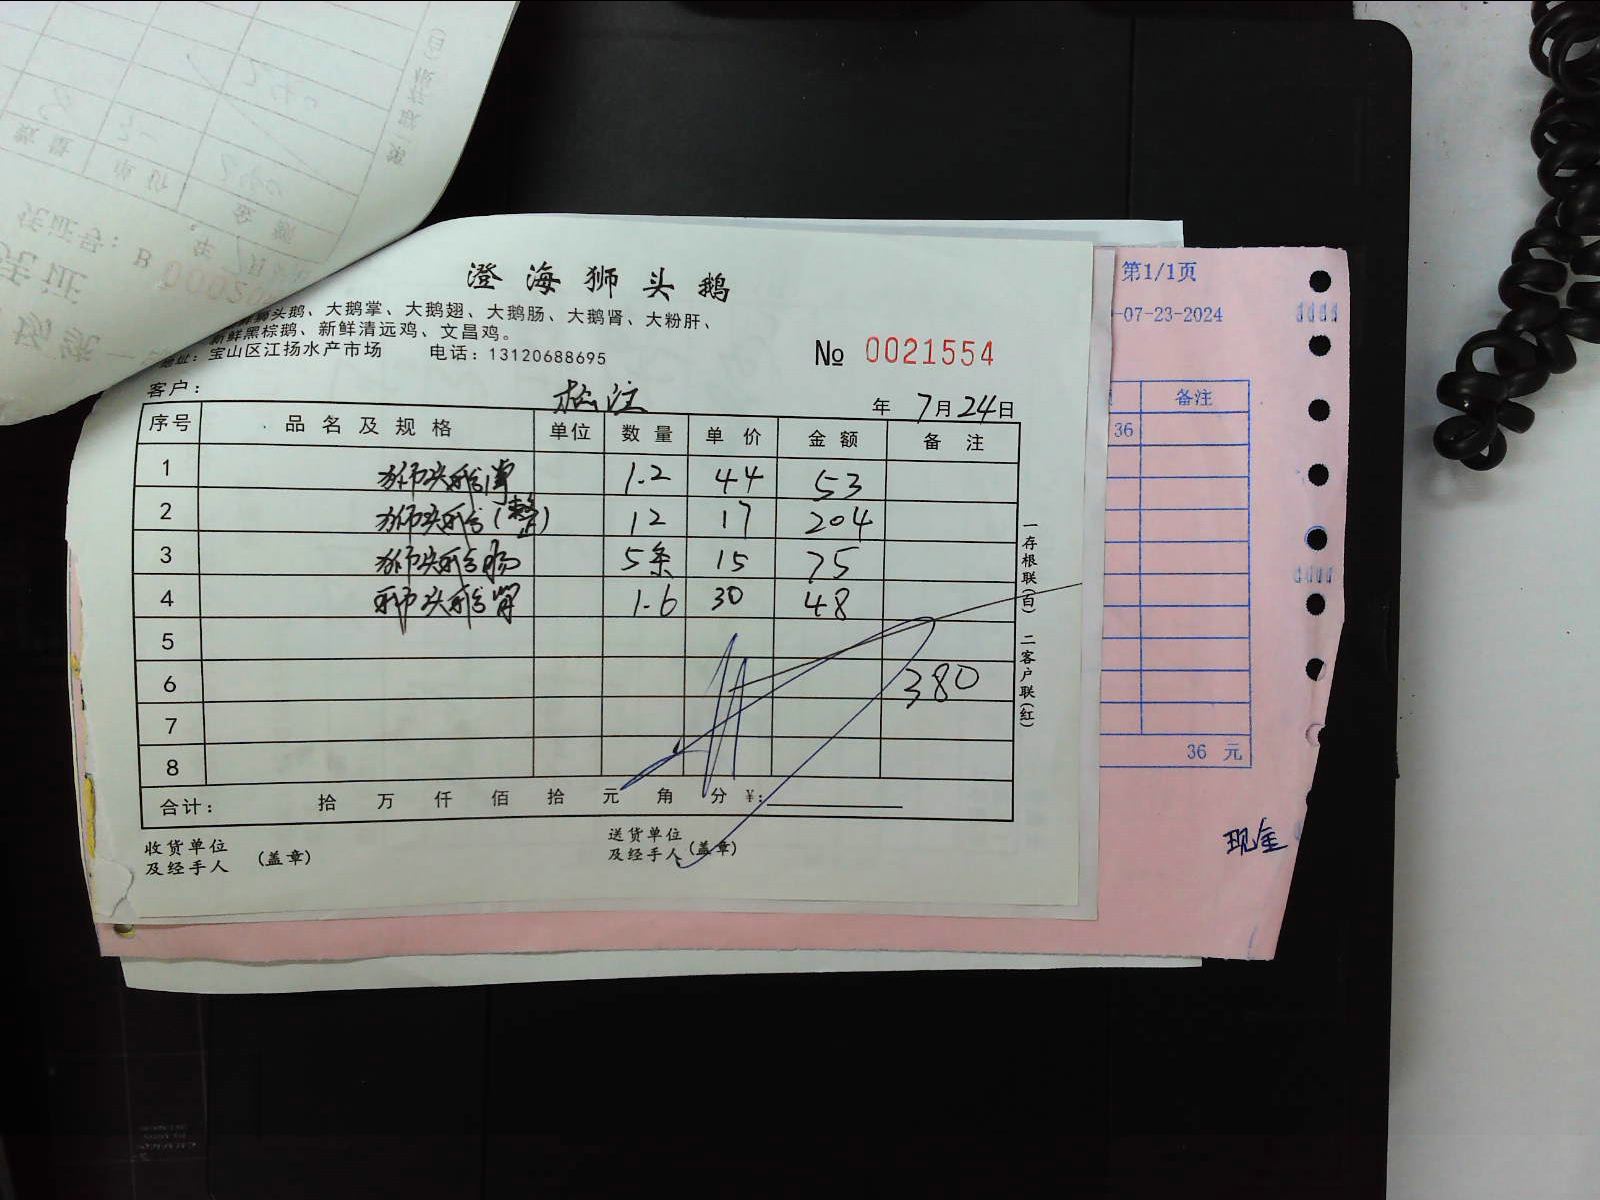 澄海狮头鹅
狮头鹅、大鹅掌、大鹅翅、大鹅肠、大鹅肾、大粉肝、
新鲜黑棕鹅、新鲜清远鸡、文昌鸡。
地址：宝山区江扬水产市场 电话：13120688695
№ 0021554
客户： 松江 年 7月24日
序号 品名及规格 单位 数量 单价 金额 备注
1 狮头鹅掌 1.2 44 53
2 狮头鹅(整) 12 17 204
3 狮头鹅肠 5条 15 75
4 狮头鹅肾 1.6 30 48
5
6 380
7
8
合计： 拾 万 仟 佰 拾 元 角 分 ¥：
收货单位
及经手人 (盖章)
送货单位
及经手人 (盖章)
一存根联(白) 二客户联(红)
第1/1页
-07-23-2024
备注
36
36 元
现金
凭证号： B